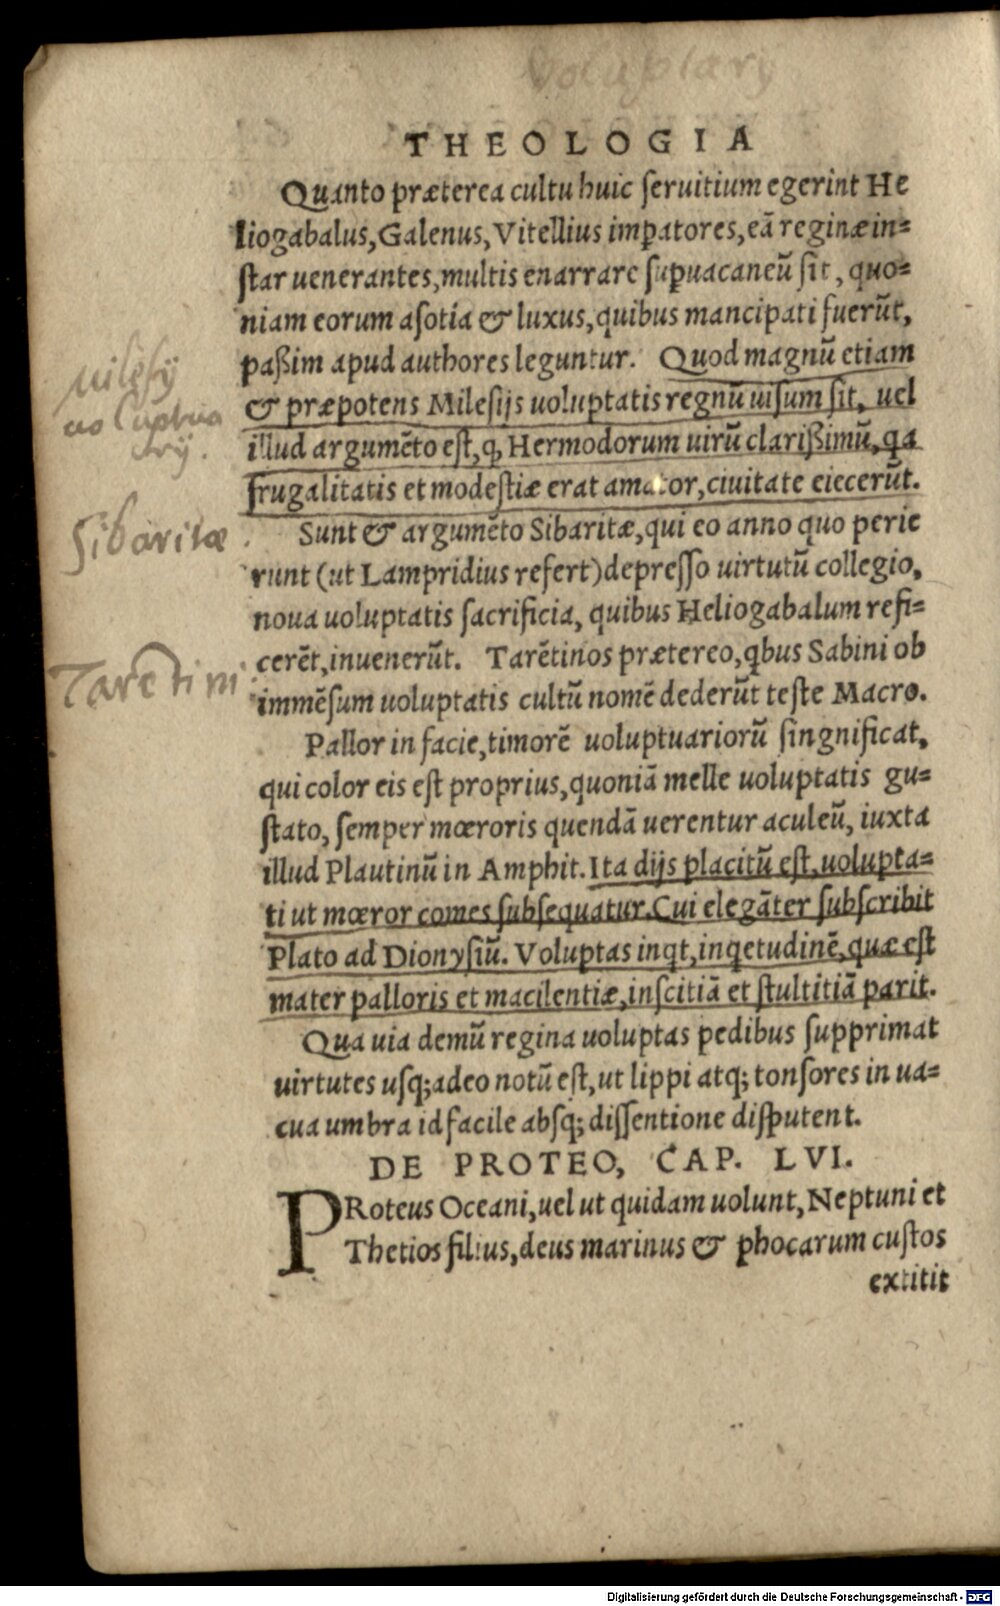 Voluptarÿ
THEOLOGIA
Quanto præterea cultu huic ſeruitium egerint He
liogabalus, Galenus, Vitellius imꝑatores, eã reginæ in=
ſtar uenerantes, multis enarrare ſuꝑuacaneũ ſit, quo=
niam eorum aſotia & luxus, quibus mancipati fuerũt,
paßim apud authores leguntur. Quod magnũ etiam
& præpotens Mileſijs uoluptatis regnũ uiſum ſit, uel
illud argumẽto eſt, ꝙ Hermodorum uirũ clarißimũ, qa
frugalitatis et modeſtiæ erat amator, ciuitate eiecerũt.
Sunt & argumẽto Sibaritæ, qui eo anno quo perie
runt (ut Lampridius refert) depreſſo uirtutũ collegio,
noua uoluptatis ſacrificia, quibus Heliogabalum refi=
cerẽt, inuenerũt. Tarẽtinos prætereo, qbus Sabini ob
immẽſum uoluptatis cultũ nomẽ dederũt teſte Macro.
Pallor in facie, timorẽ uoluptuariorũ ſingnificat,
qui color eis eſt proprius, quoniã melle uoluptatis gu=
ſtato, ſemper mœroris quendã uerentur aculeũ, iuxta
illud Plautinũ in Amphit. Ita dijs placitũ eſt, uolupta=
ti ut mœror comes ſubſequatur. Cui elegãter ſubſcribit
Plato ad Dionyſiũ. Voluptas inqt, inqetudinẽ, quæ eſt
mater palloris et macilentiæ, inſcitiã et ſtultitiã parit.
Qua uia demũ regina uoluptas pedibus ſupprimat
uirtutes uſq; adeo notũ eſt, ut lippi atq; tonſores in ua=
cua umbra id facile abſq; diſſentione diſputent.
DE PROTEO, CAP. LVI.
PRoteus Oceani, uel ut quidam uolunt, Neptuni et
Thetios filius, deus marinus & phocarum cuſtos
extitit
Mileſÿ
uoluptua
rÿ.
Sibaritæ
Tarẽtini
Digitalisierung gefördert durch die Deutsche Forschungsgemeinschaft - DFG